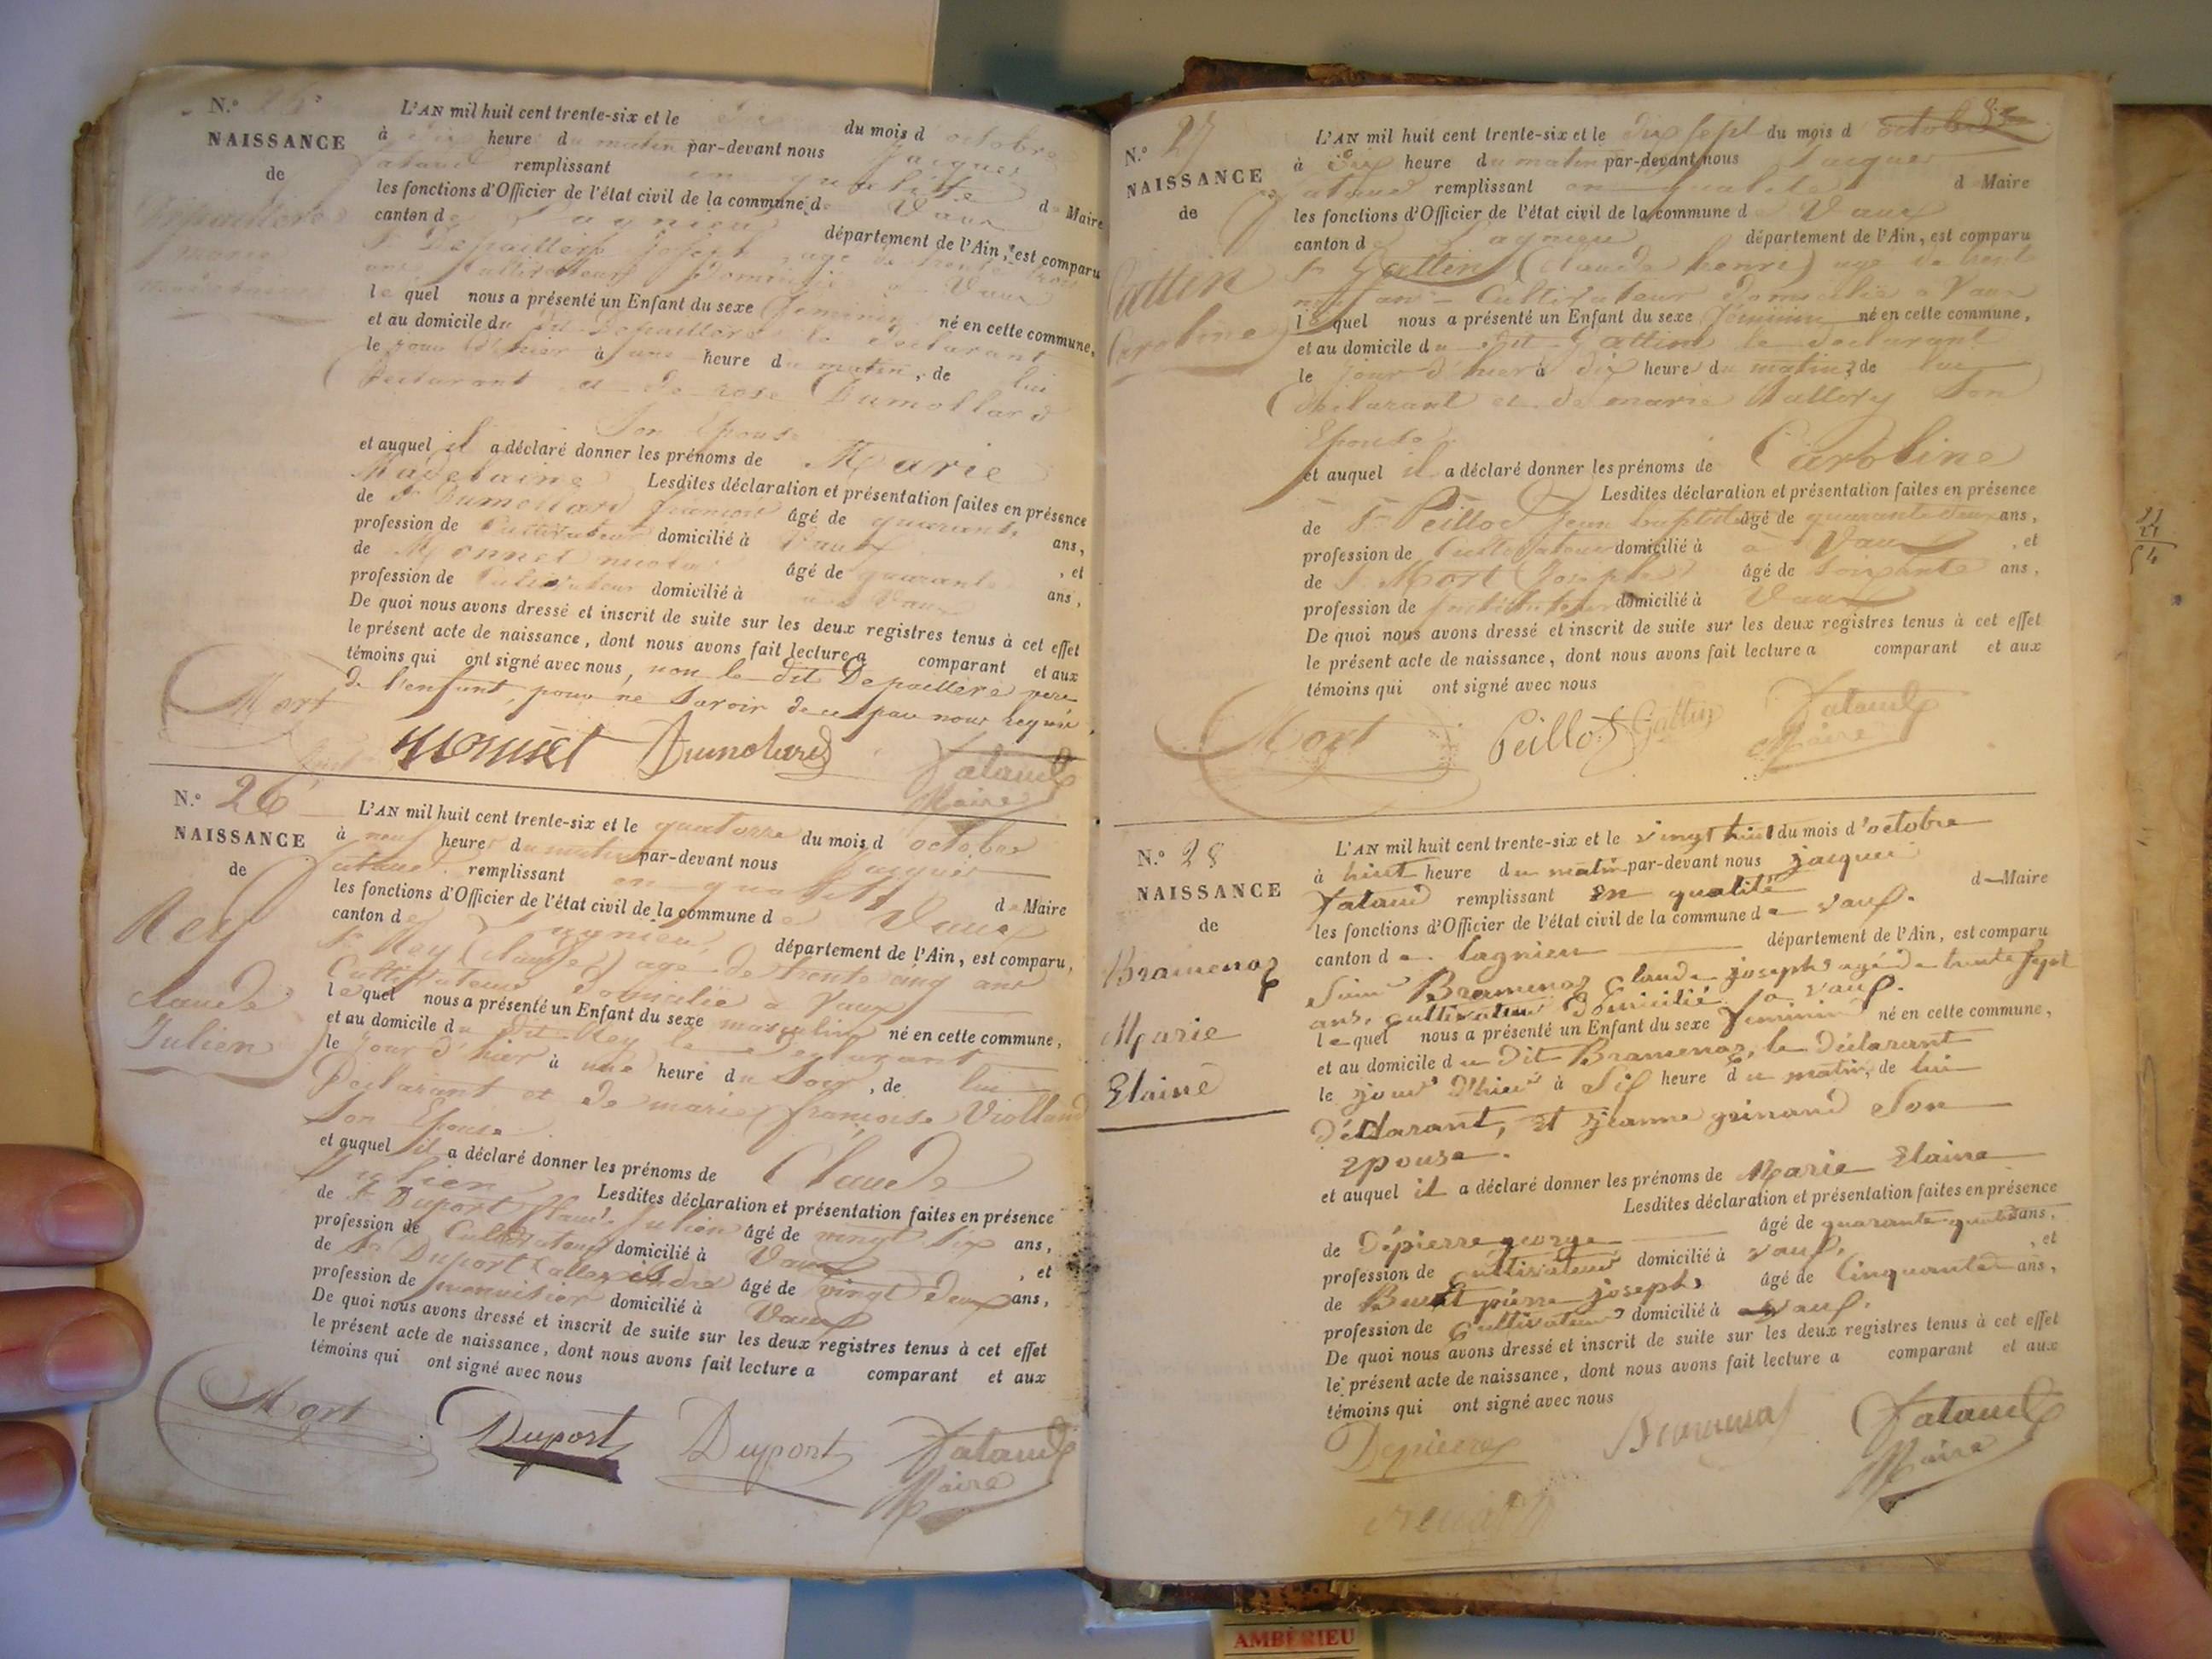 N.°
NAISSANCE
de
Marie
L'AN mil huit cent trente-six et le dix du mois d octobre
à heure du matin par-devant nous Jacques
fataud remplissant en qualité d Maire
les fonctions d'Officier de l'état civil de la commune de Vaux
canton de Lagnieu département de l'Ain, est comparu
Sr Depaillere joseph, age de trente trois
ans Cultivateur domicilié a Vaux
le quel nous a présenté un Enfant du sexe feminin né en cette commune,
et au domicile du dit Depaillere le declarant
le jour d'hier à une heure du matin, de lui
Declarant et de rose Dumollard
Son Epouse
et auquel il a déclaré donner les prénoms de Marie
Madelaine Lesdites déclaration et présentation faites en présence
de Sr Dumollard françois âgé de quarante ans,
profession de Cultivateur domicilié à Vaux , et
de Monnet âgé de quarante ans,
profession de Cultivateur domicilié à Vaux
De quoi nous avons dressé et inscrit de suite sur les deux registres tenus à cet effet
le présent acte de naissance, dont nous avons fait lecture a comparant et aux
témoins qui ont signé avec nous, non le dit Depaillere pere
de l'enfant, pour ne savoir de ce par nous requi
Mort
Monnet Dumolard fataud
Maire
N.° 26
NAISSANCE
de
Rey
claude
Julien
L'AN mil huit cent trente-six et le quatorze du mois d octobre
à neuf heures du matin par-devant nous Jacques
fataud remplissant en qualité d Maire
les fonctions d'Officier de l'état civil de la commune de Vaux
canton de Lagnieu, département de l'Ain, est comparu,
Sr Rey (claude) age de trente cinq ans
Cultivateur domicilié a Vaux
le quel nous a présenté un Enfant du sexe masculin né en cette commune,
et au domicile du dit Rey le declarant
le jour d'hier à une heure du soir, de lui
Déclarant et de marie françoise Violland
Son Epouse
et auquel il a déclaré donner les prénoms de Claude
Julien Lesdites déclaration et présentation faites en présence
de Sr Duport Claude Julien âgé de vingt six ans,
profession de Cultivateur domicilié à Vaux , et
de Sr Duport allexandre âgé de vingt deux ans,
profession de menuisier domicilié à Vaux
De quoi nous avons dressé et inscrit de suite sur les deux registres tenus à cet effet
le présent acte de naissance, dont nous avons fait lecture a comparant et aux
témoins qui ont signé avec nous
Mort Duport Duport fataud
Maire
N.° 27
NAISSANCE
de
Gattin
Caroline
L'AN mil huit cent trente-six et le dix sept du mois d octobre
à dix heure du matin par-devant nous Jacques
fataud remplissant en qualité d Maire
les fonctions d'Officier de l'état civil de la commune d Vaux
canton de Lagnieu département de l'Ain, est comparu
Sr Gattin (Claude henri) age de trente
neuf ans Cultivateur domicilié a Vaux
le quel nous a présenté un Enfant du sexe feminin né en cette commune,
et au domicile du dit Gattin le declarant
le jour d'hier à dix heure du matin, de lui
Declarant et de marie Vallory Son
Epouse
et auquel il a déclaré donner les prénoms de Caroline
Lesdites déclaration et présentation faites en présence
de Sr Peillod Jean baptiste âgé de quarante deux ans,
profession de Cultivateur domicilié à a Vaux , et
de Sr Mort Joseph âgé de soixante ans,
profession de Instituteur domicilié à Vaux
De quoi nous avons dressé et inscrit de suite sur les deux registres tenus à cet effet
le présent acte de naissance, dont nous avons fait lecture a comparant et aux
témoins qui ont signé avec nous
Mort Peillod Gattin fataud
Maire
N.° 28
NAISSANCE
de
Bramenaz
Marie
Elaine
L'AN mil huit cent trente-six et le vingt huit du mois d'octobre
à huit heure du matin par-devant nous jacques
fataud remplissant en qualité d Maire
les fonctions d'Officier de l'état civil de la commune de vaux.
canton de lagnieu département de l'Ain, est comparu
Sieur Bramenaz Claude joseph agé de trente sept
ans, cultivateur domicilié a vaux.
le quel nous a présenté un Enfant du sexe feminin né en cette commune,
et au domicile du dit Bramenaz, le déclarant
le jour d'hier à six heure du matin, de lui
déclarant, et jeanne grinand son
epouse.
et auquel il a déclaré donner les prénoms de Marie Elaine
Lesdites déclaration et présentation faites en présence
de Dépierre george âgé de quarante quatre ans,
profession de cultivateur domicilié à vaux, , et
de pierre joseph âgé de Cinquante ans,
profession de Cultivateur domicilié à vaux.
De quoi nous avons dressé et inscrit de suite sur les deux registres tenus à cet effet
le présent acte de naissance, dont nous avons fait lecture a comparant et aux
témoins qui ont signé avec nous
Depierre Bramenaz fataud
Maire
AMBÉRIEU